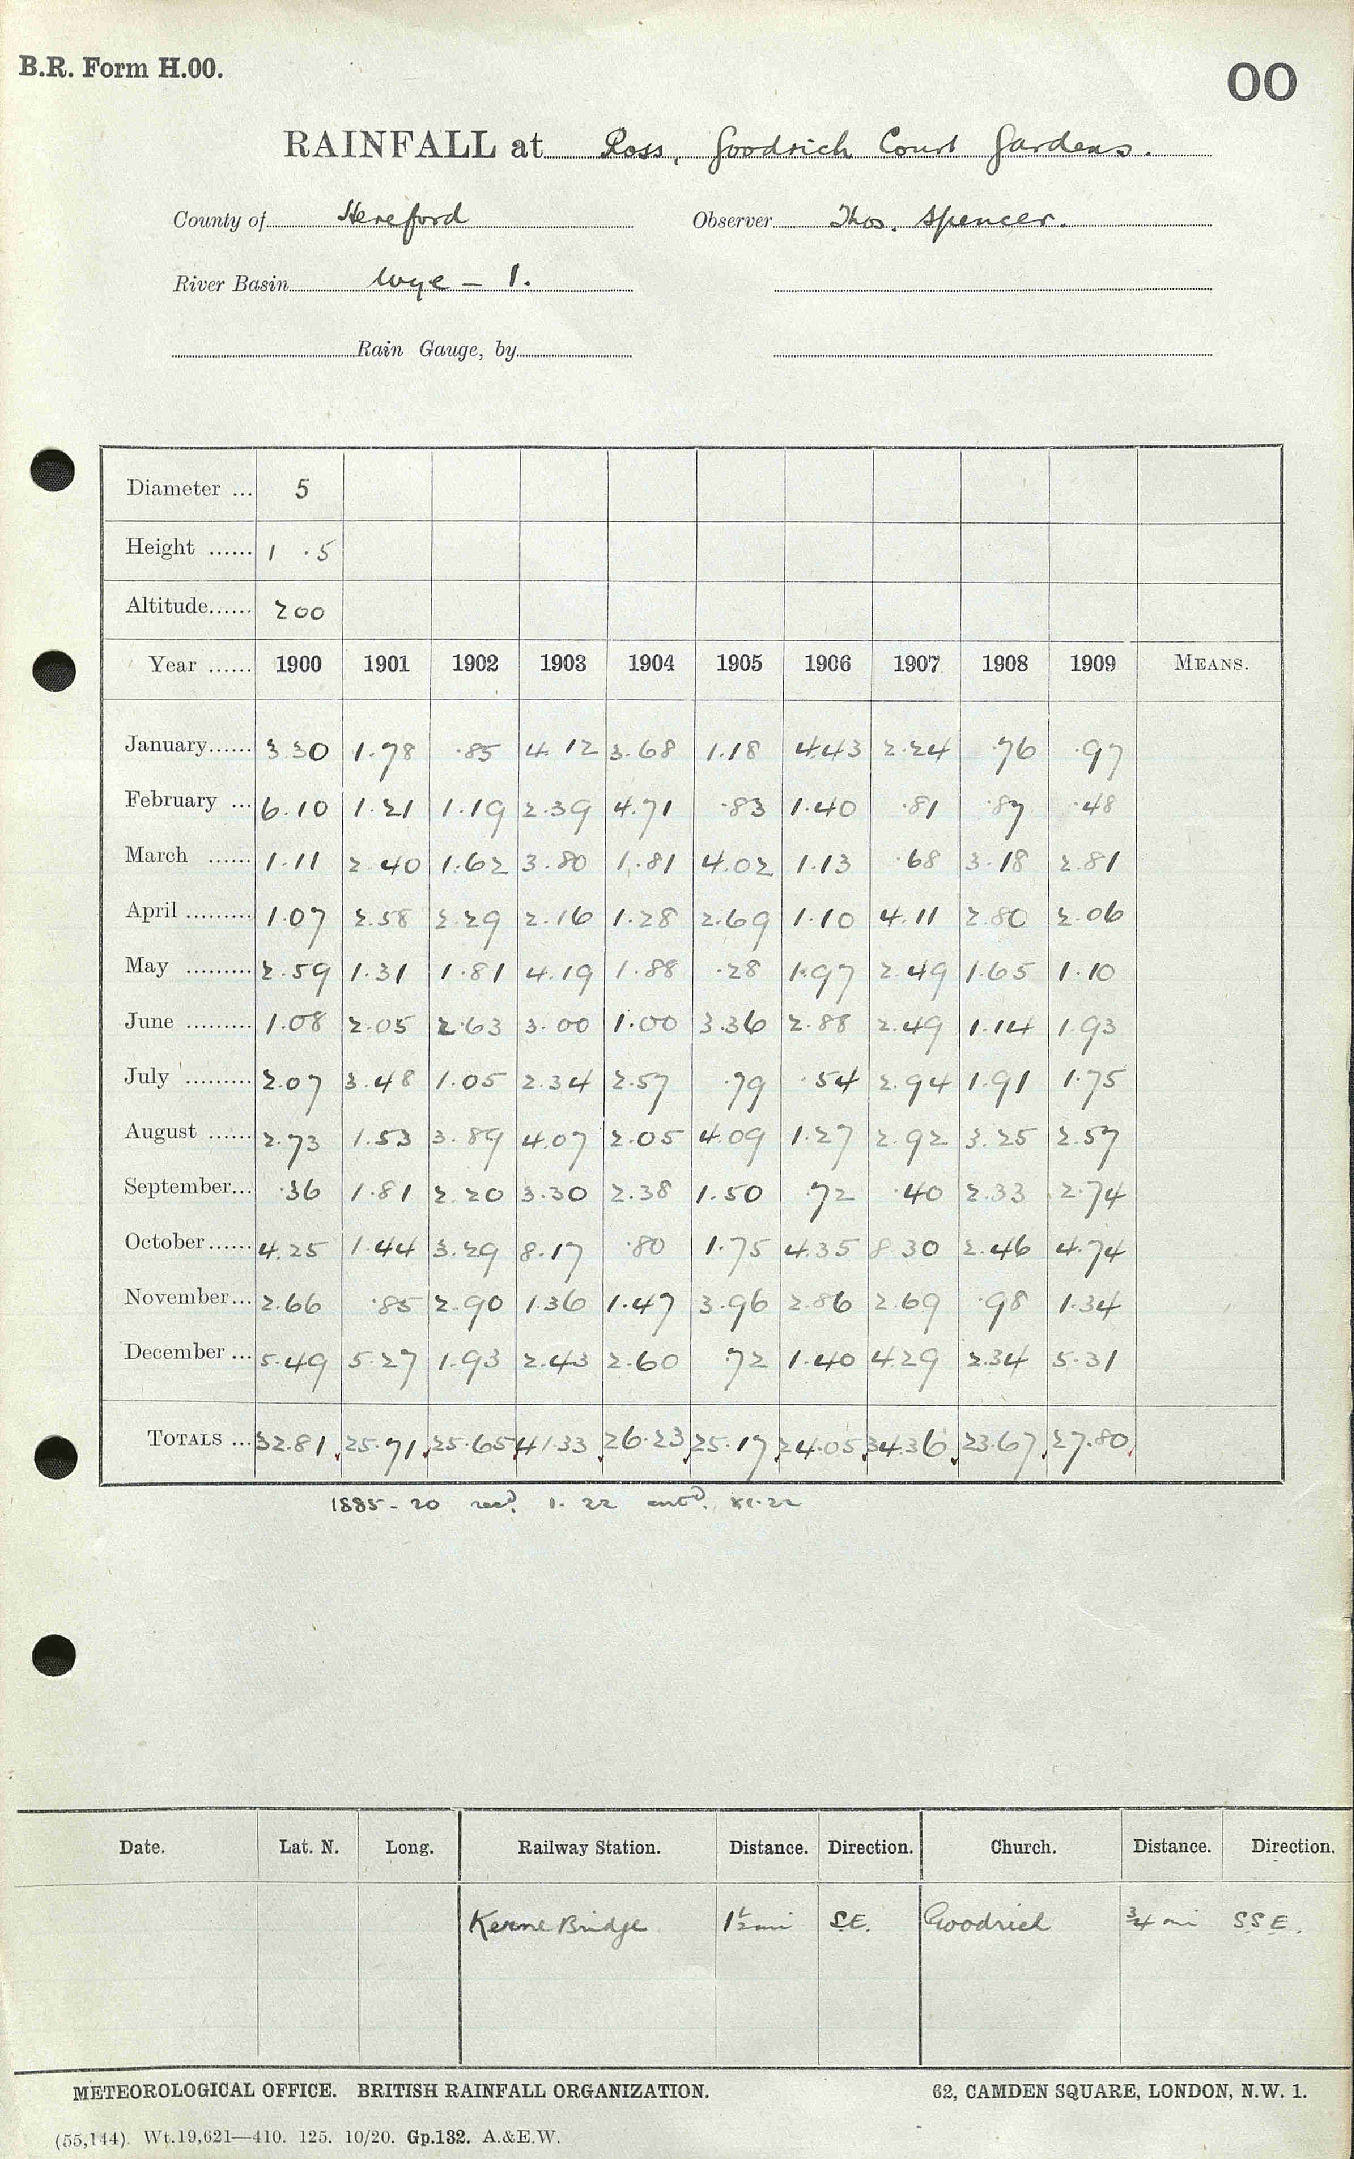 B.R. Form H.00.
00
RAINFALL at Ross, Goodrich Court Gardens.
County of Hereford Observer Thos. Spencer.
River Basin Wye - 1.
Rain Gauge, by
Diameter ... 5
Height ...... 1 .5
Altitude...... 200
Year ...... 1900 1901 1902 1903 1904 1905 1906 1907 1908 1909 MEANS.
January...... 3.30 1.78 .85 4.12 3.68 1.18 4.43 2.24 .76 .97
February ... 6.10 1.21 1.19 2.39 4.71 .83 1.40 .81 .87 .48
March ...... 1.11 2.40 1.62 3.80 1.81 4.02 1.13 .68 3.18 2.81
April ......... 1.07 2.58 2.29 2.16 1.28 2.69 1.10 4.11 2.80 2.06
May ......... 2.59 1.31 1.81 4.19 1.88 .28 1.97 2.49 1.65 1.10
June ......... 1.08 2.05 2.63 3.00 1.00 3.36 2.88 2.49 1.14 1.93
July ......... 2.07 3.48 1.05 2.34 2.57 .79 .54 2.94 1.91 1.75
August ...... 2.73 1.53 3.89 4.07 2.05 4.09 1.27 2.92 3.25 2.57
September... .36 1.81 2.20 3.30 2.38 1.50 .72 .40 2.33 2.74
October...... 4.25 1.44 3.29 8.17 .80 1.75 4.35 8.30 2.46 4.74
November... 2.66 .85 2.90 1.36 1.47 3.96 2.86 2.69 .98 1.34
December ... 5.49 5.27 1.93 2.43 2.60 .72 1.40 4.29 2.34 5.31
TOTALS ... 32.81 25.71 25.65 41.33 26.23 25.17 24.05 34.36 23.67 27.80
1885-20 recd. 1.22 entd. XI.22
Date. Lat. N. Long. Railway Station. Distance. Direction. Church. Distance. Direction.
Kerne Bridge 1½ mi S.E. Goodrich ¾ mi SSE.
METEOROLOGICAL OFFICE. BRITISH RAINFALL ORGANIZATION. 62, CAMDEN SQUARE, LONDON, N.W. 1.
(55,144). Wt.19,621—410. 125. 10/20. Gp.132. A.&E.W.